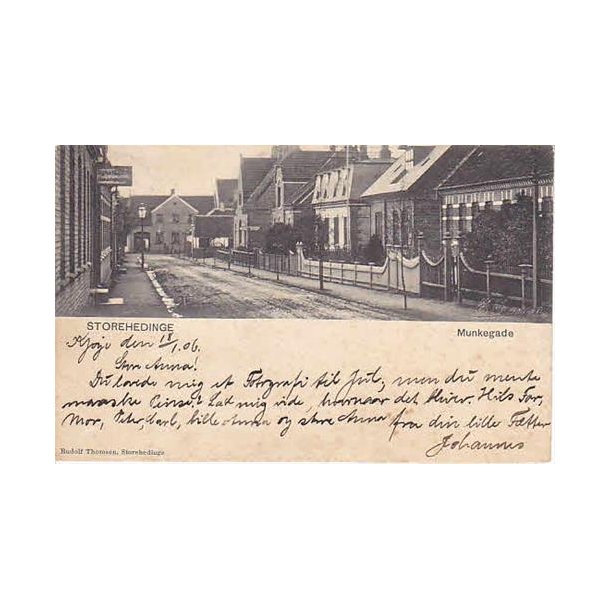 STOREHEDINGE
Munkegade
Kjøge den 18/1.06.
Store Anna!
Du lovede mig et Fotografi til Jul, men du mente
maaske Pinse? Lad mig vide, hvornaar det bliver. Hils Far,
Mor, Peter, Carl, lille Anna og store Anna fra din lille Fætter
Johannes
Rudolf Thomsen, Storehedinge